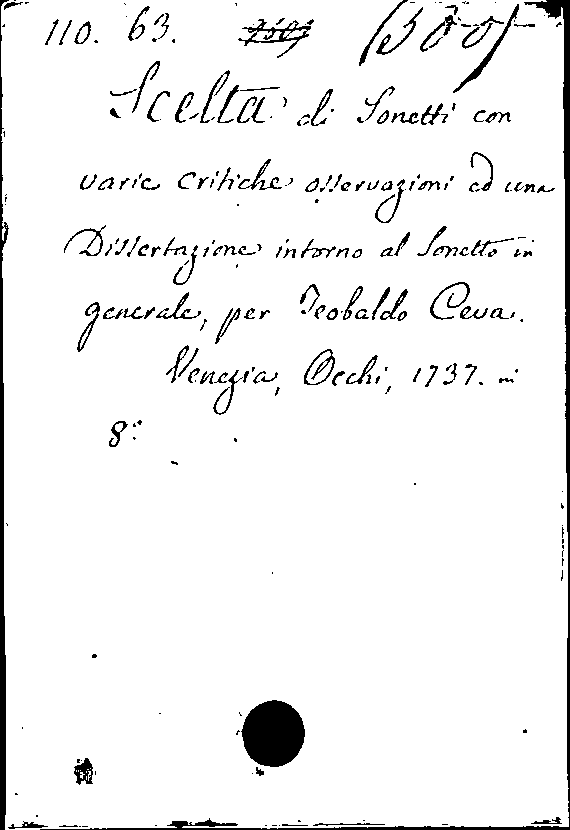 110. 63.
Scelta di Sonetti con
varie critiche osservazioni ed una
Dissertazione intorno al Sonetto in
generale, per Teobaldo Ceva.
Venezia, Occhi, 1737. in
8º